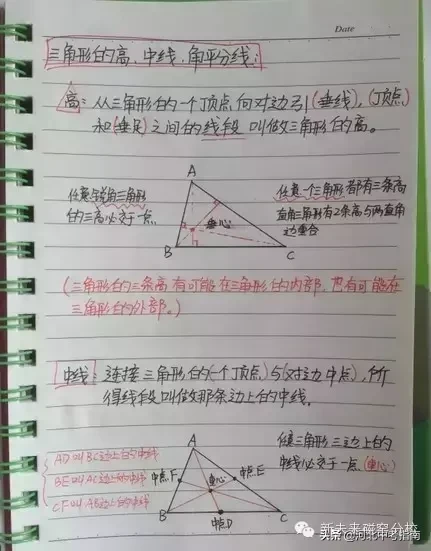 Date
三角形的高、中线、角平分线:
高: 从三角形的一个顶点向对边引(垂线),(顶点)
和(垂足)之间的线段叫做三角形的高。
A
任意锐角三角形
的三高必交于一点
任意一个三角形都有三条高
直角三角形有2条高与两直角
边重合
垂心
B
C
(三角形的三条高有可能在三角形的内部,也有可能在
三角形的外部。)
中线: 连接三角形的(一个顶点)与(对边中点),所
得线段叫做那条边上的中线。
A
AD叫BC边上的中线
BE叫AC边上的中线
CF叫AB边上的中线
中点F
中点E
重心
三角形三边上的
中线必交于一点(重心)
B
中点D
C
新未来磁窑分校
头条@河北中考指南